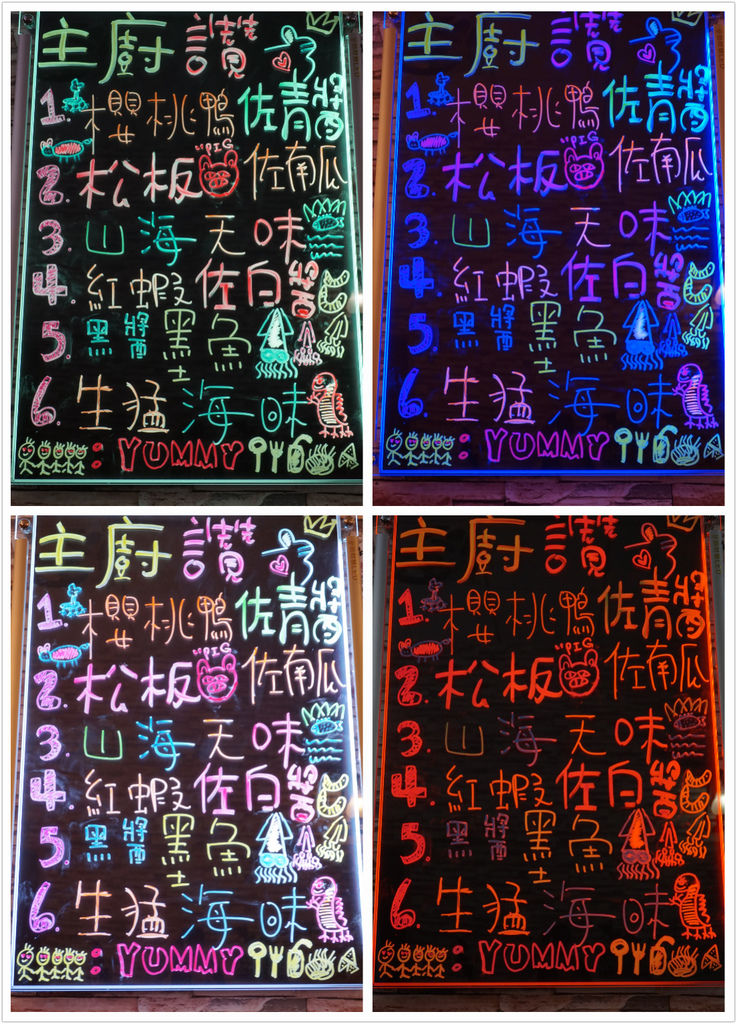 主廚讚
1. 櫻桃鴨佐青醬
2. 松板 "PIG 佐南瓜
3. 山海天味
4. 紅蝦佐白醬
5. 黑醬墨魚
6. 生猛海味
: YUMMY
主廚讚
1. 櫻桃鴨佐青醬
2. 松板 "PIG" 佐南瓜
3. 山海天味
4. 紅蝦佐白醬
5. 黑醬墨魚
6. 生猛海味
: YUMMY
主廚讚
1. 櫻桃鴨佐青醬
2. 松板 "PIG 佐南瓜
3. 山海天味
4. 紅蝦佐白醬
5. 黑醬墨魚
6. 生猛海味
: YUMMY
主廚讚
1. 櫻桃鴨佐青醬
2. 松板 "PIG" 佐南瓜
3. 山海天味
4. 紅蝦佐白醬
5. 黑醬墨魚
6. 生猛海味
: YUMMY